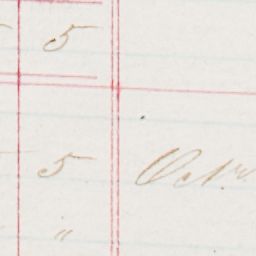 5
5 Octr
"